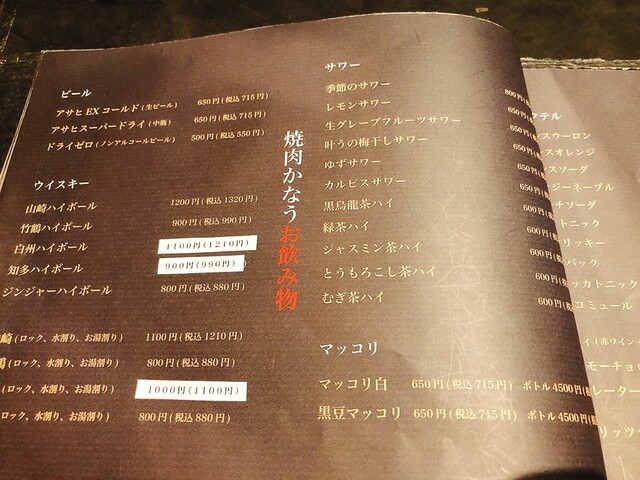 ビール
アサヒ EX コールド (生ビール) 650円 (税込 715円)
アサヒスーパードライ (中瓶) 650円 (税込 715円)
ドライゼロ (ノンアルコールビール) 500円 (税込 550円)
ウイスキー
山崎ハイボール 1200円 (税込 1320円)
竹鶴ハイボール 900円 (税込 990円)
白州ハイボール 1100円 (1210円)
知多ハイボール 900円 (990円)
ジンジャーハイボール 800円 (税込 880円)
崎 (ロック、水割り、お湯割り) 1100円 (税込 1210円)
鶴 (ロック、水割り、お湯割り) 800円 (税込 880円)
(ロック、水割り、お湯割り) 1000円 (1100円)
ロック、水割り、お湯割り) 800円 (税込 880円)
焼肉かなうお飲み物
サワー
季節のサワー 800円
レモンサワー 650円
生グレープフルーツサワー 650円
叶うの梅干しサワー 650円
ゆずサワー 650円
カルピスサワー 650円
黒烏龍茶ハイ 600円
緑茶ハイ 600円
ジャスミン茶ハイ 600円
とうもろこし茶ハイ 600円
むぎ茶ハイ 600円
マッコリ
マッコリ白 650円 (税込 715円) ボトル 4500円 (税
黒豆マッコリ 650円 (税込 715円) ボトル 4500円 (税
テル
スウーロン
スオレンジ
スソーダ
ジーネーブル
ソーダ
トニック
リッキー
バック
ッカトニック
コミュール
イ (赤ワイン
モーチョ
レーター
リッツ